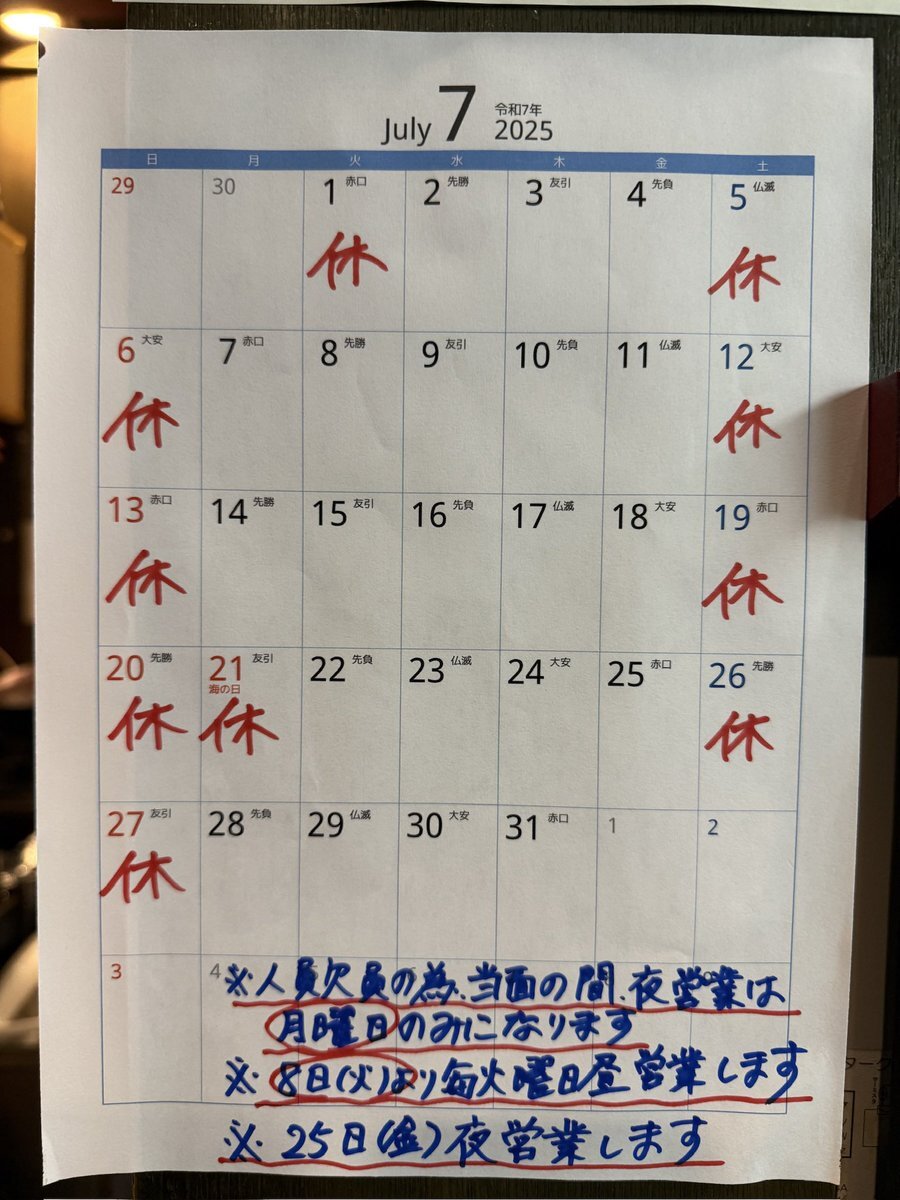 July 7 令和7年 2025
日 月 火 水 木 金 土
29 30 1 赤口 2 先勝 3 友引 4 先負 5 仏滅
休 休
6 大安 7 赤口 8 先勝 9 友引 10 先負 11 仏滅 12 大安
休 休
13 赤口 14 先勝 15 友引 16 先負 17 仏滅 18 大安 19 赤口
休 休
20 先勝 21 友引 22 先負 23 仏滅 24 大安 25 赤口 26 先勝
海の日
休 休 休
27 友引 28 先負 29 仏滅 30 大安 31 赤口 1 2
休
3 4
※人員欠員の為、当面の間、夜営業は
月曜日のみになります
※8日(火)より毎火曜日昼営業します
※25日(金)夜営業します